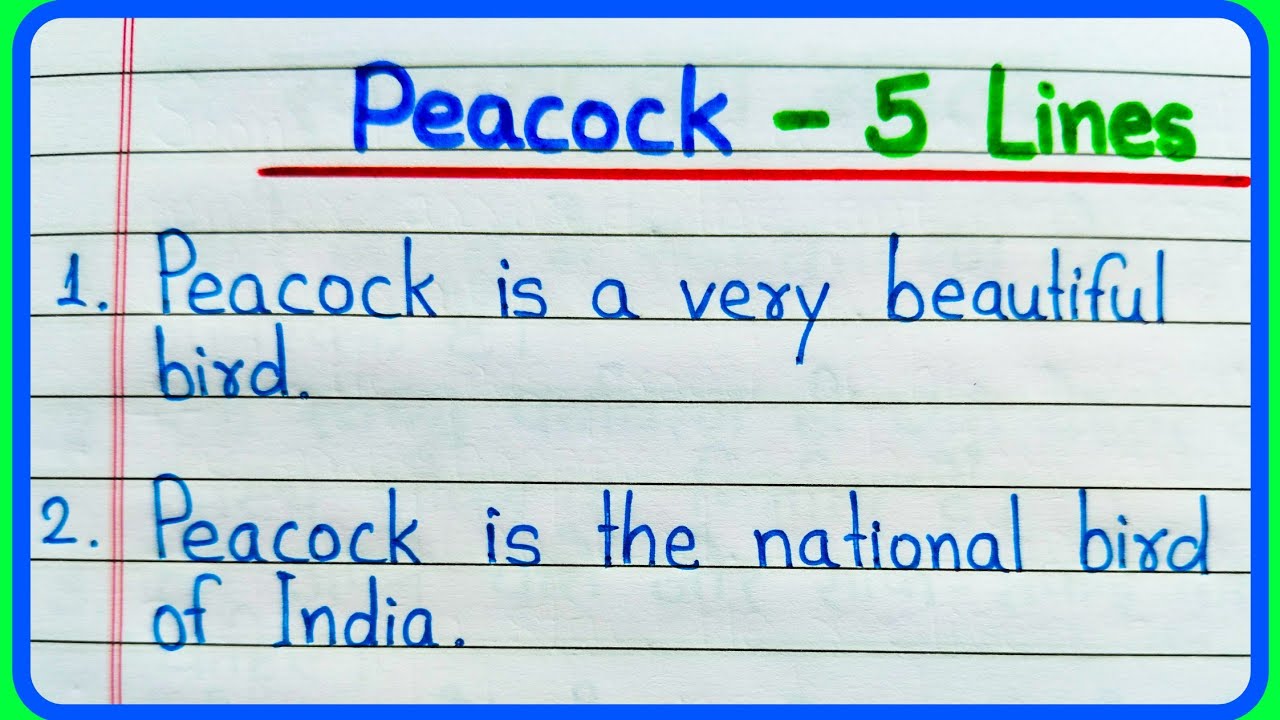 Peacock - 5 Lines
1. Peacock is a very beautiful
bird.
2. Peacock is the national bird
of India.